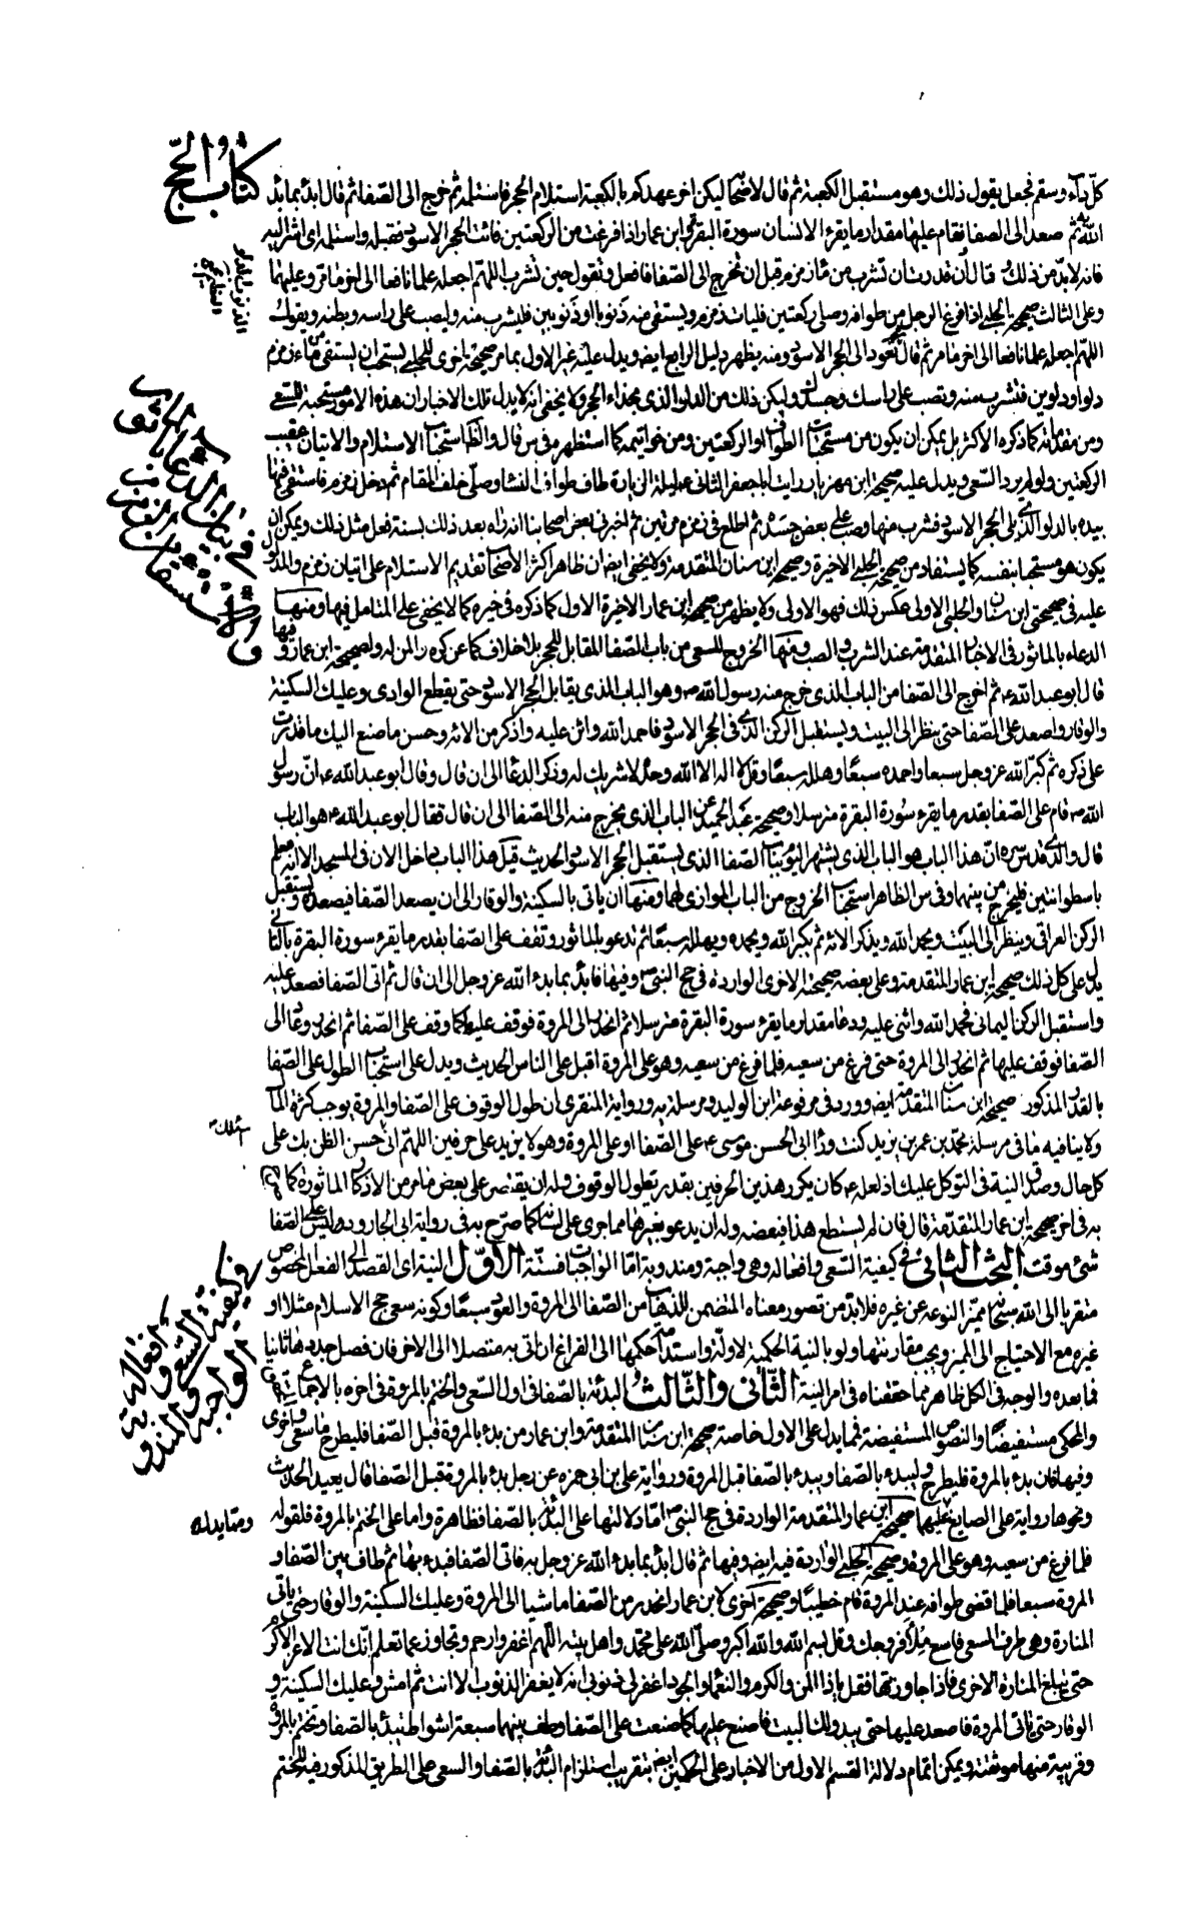 كتاب الحج
كلّ داء وسقم فجعل يقول ذلك وهو مستقبل الكعبة ثم قال لاصحابه ليكن اخر عهدكم بالكعبة استلام الحجر فاستلمه ثم خرج الى الصّفا ثم قال ابدء بما بدء
الله به ثم صعد الى الصفا فقام عليها مقدار ما يقرء الانسان سورة البقرة ابن عمار اذا فرغت من الركعتين فائت الحجر الاسود فقبله واستلمه او اشر اليه
فانه لا بدّ من ذلك وقال ان قدرت ان تشرب من ماء زمزم قبل ان تخرج الى الصّفا فافعل وتقول حين تشرب اللهم اجعله علما نافعا الى اخر ما مر وعليهما
وعلى الثالث صحيحة الحلبي اذا فرغ الرجل من طوافه وصلى ركعتين فليات زمزم ويستقى منه ذنوبا او ذنوبين فليشرب منه وليصب على راسه وبطنه ويقول
اللهم اجعله علما نافعا الى اخر ما مر ثم قال ثم يعود الى الحجر الاسود ومنه يظهر دليل الرابع ايضا ويدل عليه غير الاول بما مر صحيحة اخرى للحلبي يستحب ان يستقى من ماء زمزم
دلوا ودلوين فتشرب منه وتصب على راسك وجسدك وليكن ذلك من الدلو الذى بحذاء الحجر ولا يخفى انه لا يدل تلك الاخبار ان هذه الامور مستحبة للسعى
ومن مقدماته كما ذكره الاكثر بل يمكن ان يكون من مستحبات الطواف او الركعتين ومن خواتيمه كما استظهر فى س قال والظاهر استحباب الاستلام والاتيان عقيب
الركعتين ولو لم يرد السّعى ويدل عليه صحيحة ابن مهزيار رايت ابا جعفر الثانى ليلة الزيارة طاف طواف النساء وصلى خلف المقام ثم دخل زمزم فاستقى منها
بيده بالدلو الذى يلى الحجر الاسود فشرب منها وصب على بعض جسده ثم اطلع فى زمزم مرتين ثم اخبرنى بعض اصحابنا انه راه بعد ذلك بسنة فعل مثل ذلك ويمكن ان
يكون هو مستحبا بنفسه كما يستفاد من صحيحة الحلبي الاخيرة وصحيحة ابن سنان المتقدمة ولا يخفى ايضا ان ظاهر اكثر الاصحاب تقديم الاستلام على اتيان زمزم والمدلول
عليه فى صحيحتى ابن سنان والحلبى الاولى عكس ذلك فهو الاولى ولا يظهر من صحيحة ابن عمار الاخيرة الاول كما ذكره فى خيره كما لا يخفى على المتامل فيها ومنها
الدعاء بالماثور فى الاخبار المتقدمة عند الشرب والصب ومنها الخروج للسعى من باب الصّفا المقابل للحجر بلا خلاف كما عن كره لصحيحة ابن عمار وفيها
قال ابو عبد الله ع ثم اخرج الى الصّفا من الباب الذى خرج منه رسول الله ص وهو الباب الذى يقابل الحجر الاسود حتى يقطع الوادى وعليك السكينة
والوقار واصعد على الصّفا حتى ينظر الى البيت ويستقبل الركن الذى فى الحجر الاسود فاحمد الله واثن عليه واذكر من الائه وحسن ما صنع اليك ما قدرت
على ذكره ثم كبّر الله عز وجل سبعا واحمده سبعًا وهلله سبعًا وقل لا اله الا الله وحده لا شريك له وذكر الدعاء الى ان قال وقال ابو عبد الله ع انّ رسول
الله ص قام على الصّفا بقدر ما يقرء سورة البقرة مترسلا وصحيحة عبد الحميد عن الباب الذى يخرج منه الى الصّفا الى ان قال فقال ابو عبد الله ع هو الباب
الذى يستقبل الحجر الاسود الحديث قيل هذا الباب داخل الان فى المسجد الا انه معلم
باسطوانتين فليخرج من بينهما وفى س الظاهر استحباب الخروج من الباب الموازى لهما ومنها ان ياتى بالسكينة والوقار الى ان يصعد الصّفا فيصعده ويستقبل
الركن العراقى وينظر الى البيت ويحمد الله ويذكر الائه ثم يكبر الله ويحمده ويهلله سبعًا ثم تدعو بالماثور وتقف على الصّفا بقدر ما يقرء سورة البقرة بالتانى
يدل على كل ذلك صحيحة ابن عمار المتقدمة وعلى بعضه صحيحته الاخرى الواردة فى حج النبى ص وفيها فابدأ بما بدء الله عز وجل الى ان قال ثم اتى الصّفا فصعد عليه
واستقبل الركن اليمانى فحمد الله واثنى عليه ودعا مقدار ما يقرء سورة البقرة مترسلا ثم انحدر الى المروة فوقف عليها كما وقف على الصّفا ثم انحدر وعاد الى
الصّفا فوقف عليها ثم انحدر الى المروة حتى فرغ من سعيه فلما فرغ من سعيه وهو على المروة اقبل على الناس الحديث ويدل على استحباب الطول على الصّفا
بالقدر المذكور صحيحة ابن سنان المتقدمة ايضا وورد فى مرفوعة ابن الوليد ومرسلة يه ورواية المنقرى ان طول الوقوف على الصّفا والمروة يوجب كثرة المال
ولا ينافيه ما فى مرسلة محمد بن عمر بن يزيد كنت وراء ابى الحسن موسى ع على الصّفا او على المروة وهو لا يزيد على حرفين اللهم انى اسئلك حسن الظن بك على
كل حال وصدق النية فى التوكل عليك اذ لعله ع كان يكرر هذين الحرفين بقدر يطول الوقوف وله ان يقتصر على بعض ما مر من الاذكار الماثورة كما
به فى اخر صحيحة ابن عمار المتقدمة قال فان لم يستطع هذا فبعضه وله ان يدعو بغيرها مما جرى على لسانه كما صرّح به فى رواية ابى الجارود وليس على الصّفا
شىء موقت البحث الثانى فى كيفية السّعى وافعاله وهى واجبة ومندوبة امّا الواجبات فستّة الاوّل النية اى القصد الى الفعل المخصوص
متقربا الى الله سبحانه مميّزا لنوعه عن غيره فلا بد من تصور معناه المتضمن للذهاب من الصّفا الى المروة والعود سبعًا وكونه سعى حج الاسلام مثلا او
غيره مع الاحتياج الى المميز ويجب مقارنتها ولو بالنية الحكمية لاوله واستدامة حكمها الى الفراغ ان اتى به متصلا الى الاخر فان فصل جددها ثانيا
فما بعده والوجه فى الكل ظاهر مما حققناه فى امر النية الثّانى والثّالث البدئة بالصّفا فى اول السّعى والختم بالمروة فى اخره بالاجماع
والمحكى مستفيضًا والنصوص المستفيضة فمما يدل على الاول خاصة صحيحة ابن سنان المتقدمة وابن عمار من بدء بالمروة قبل الصّفا فليطرح ما سعى واخرى
وفيها فان بدء بالمروة فليطرح وليبدء بالصّفا ويبدء بالصّفا قبل المروة ورواية على بن ابى حمزة عن رجل بدء بالمروة قبل الصّفا قال يعيد الحديث
ونحوها رواية على الصايغ ومما يدل عليهما صحيحة ابن عمار المتقدمة الواردة فى حج النبى ص امّا دلالتها على البدئة بالصّفا فظاهرة واما على الختم بالمروة فلقوله
فلما فرغ من سعيه وهو على المروة وصحيحة الحلبي الواردة فيه ايضا وفيها ثم قال ابدء بما بدء الله عز وجل به فاتى الصّفا فبدء بها ثم طاف بين الصّفا و
المروة سبعا فلما قضى طوافه عند المروة قام خطيبًا وصحيحة اخرى لابن عمار انحدر من الصّفا ماشيا الى المروة وعليك السكينة والوقار حتى ياتى
المنارة وهى طرف المسعى فاسع ملأ فروجك وقل بسم الله والله اكبر وصلّى الله على محمد واهل بيته اللهم اغفر وارحم وتجاوز عما تعلم انّك انت الاعز الاكرم
حتى تبلغ المنارة الاخرى فاذا جاوزتها فقل يا ذا المن والكرم والنعماء والجود اغفر لى ذنوبى انه لا يغفر الذنوب الا انت ثم امش وعليك السكينة و
الوقار حتى تاتى المروة فاصعد عليها حتى يبدو لك البيت فاصنع عليها كما صنعت على الصّفا وطف بينهما سبعة اشواط تبدء بالصّفا وتختم بالمروة
وقريبة منها موثقته ويمكن اتمام دلالة القسم الاول من الاخبار على الحكمين ايضا بتقريب استلزام البدئة بالصّفا والسعى على الطريق المذكور فيه للختم
فى بيان الدعاء الماثور
والاستسقاء من زمزم
اسئلك
فى كيفية السّعى و
افعاله
الواجبة والمندوبة
ومما يدل